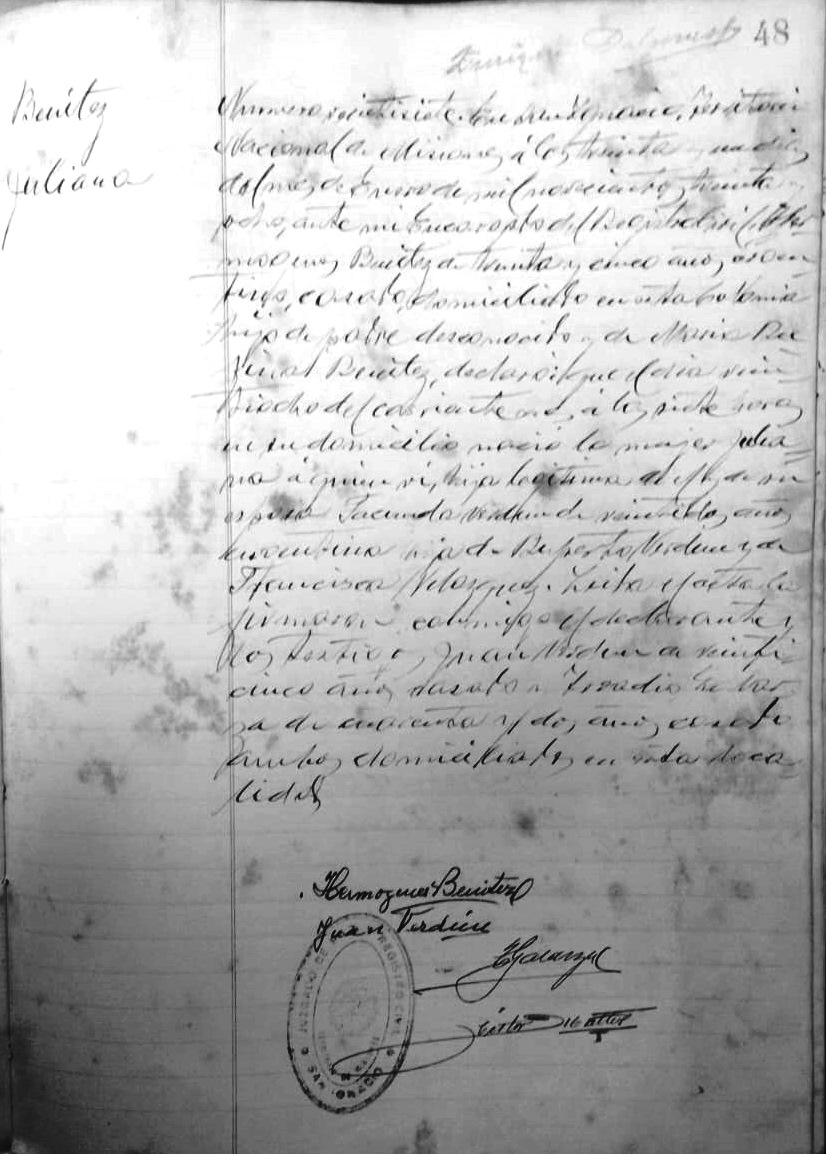 48
Benítez
Juliana
Numero veintisiete. En San Ignacio, Territori
Nacional de Misiones, á los treinta y un dias
del mes de Enero de mil novecientos treinta y
ocho, ante mi Encargado del Registro Civil, Her
mogenes Benítez de treinta y cinco años, argen
tino, casado, domiciliado en esta Colonia
hijo de padre desconocido y de Maria
Benítez, declaró: que el dia vein
tiocho del corriente, á las siete horas
en su domicilio nació la mujer Julia
na á quien ví, hija legitima de él y de su
esposa Facunda Verdun de veintidos años
argentina hija de Ruperto Verdun y de
Francisca Velazquez. Leida el acta la
firmaron conmigo el declarante y
los testigos, Juan Verdun de veinti
cinco años casado y
de cuarenta y dos años, casado
ambos domiciliados en esta loca
lidad
Hermogenes Benitez
Juan Verdún
JUZGADO DE REGISTRO CIVIL
SAN IGNACIO